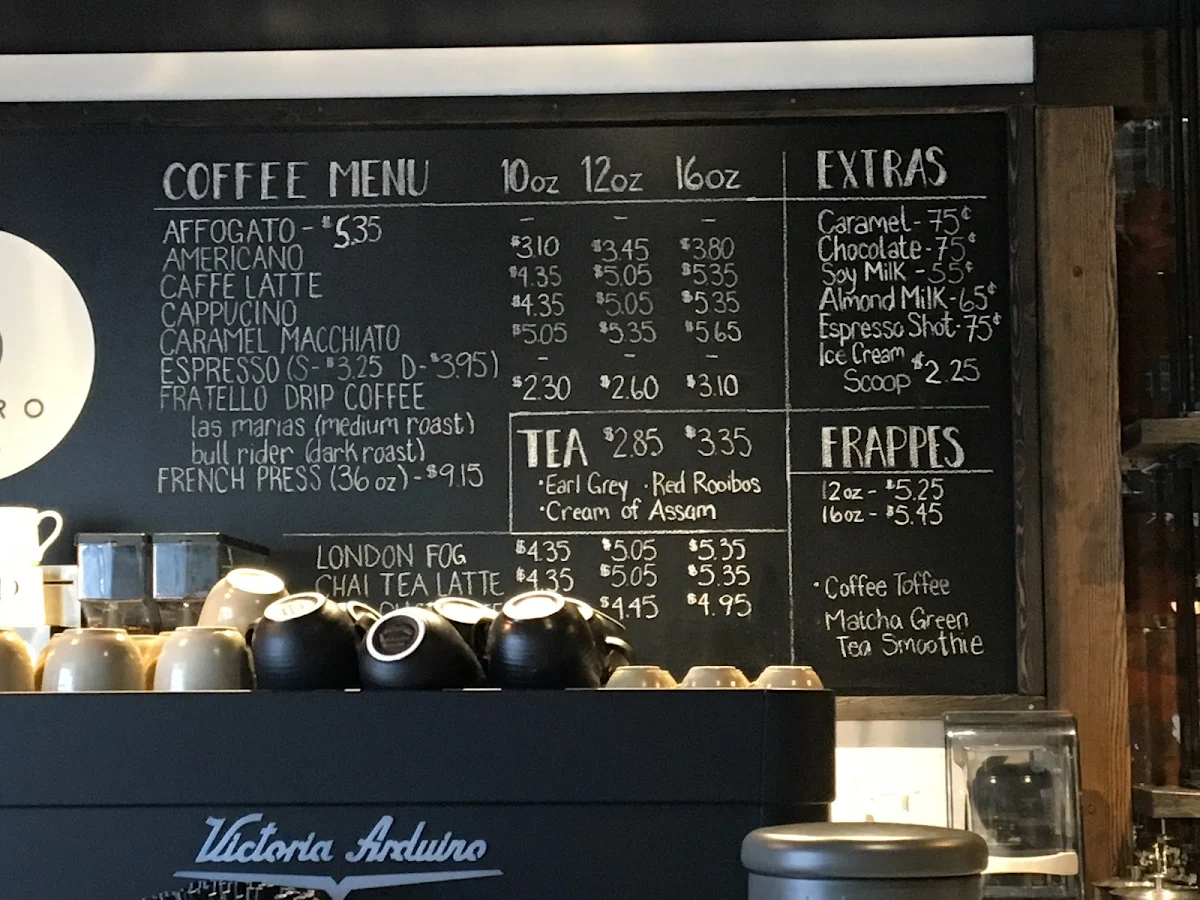 COFFEE MENU 10oz 12oz 16oz
AFFOGATO - $5.35 - - -
AMERICANO $3.10 $3.45 $3.80
CAFFE LATTE $4.35 $5.05 $5.35
CAPPUCINO $4.35 $5.05 $5.35
CARAMEL MACCHIATO $5.05 $5.35 $5.65
ESPRESSO (S-$3.25 D-$3.95) - - -
FRATELLO DRIP COFFEE $2.30 $2.60 $3.10
las marias (medium roast)
bull rider (dark roast)
FRENCH PRESS (36oz) - $9.15
TEA $2.85 $3.35
•Earl Grey •Red Rooibos
•Cream of Assam
LONDON FOG $4.35 $5.05 $5.35
CHAI TEA LATTE $4.35 $5.05 $5.35
$4.45 $4.95
EXTRAS
Caramel - 75¢
Chocolate - 75¢
Soy Milk - 55¢
Almond Milk - 65¢
Espresso Shot - 75¢
Ice Cream
Scoop $2.25
FRAPPES
12oz - $5.25
16oz - $5.45
•Coffee Toffee
Matcha Green
Tea Smoothie
RO
D
Victoria Arduino